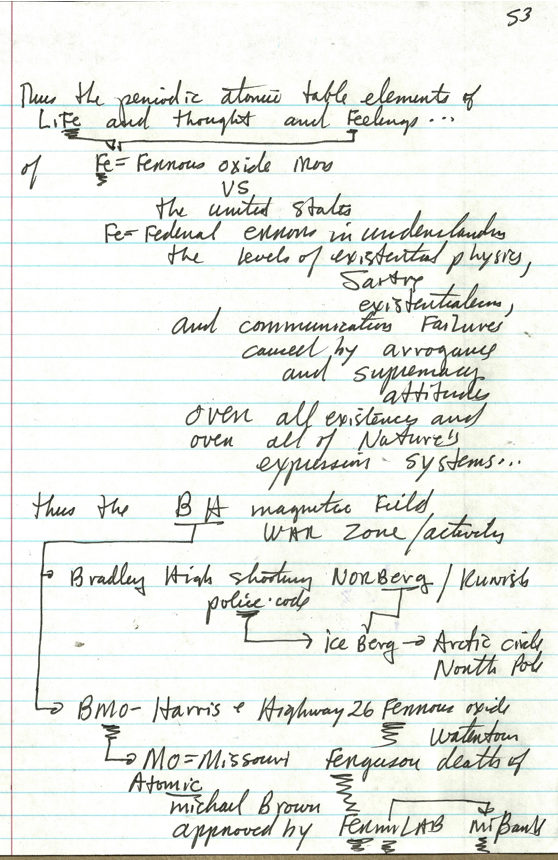 53
Thus the periodic atomic table elements of
LiFe and thought and Feelings...
of Fe= Ferrous oxide mos
VS
the united states
Fe= Federal errors in understanding
the levels of existential physics,
Sartre
existentialism,
and communication Failures
caused by arrogance
and supremacy
attitudes
over all existence and
over all of Nature's
expression systems...
thus the BH magnetic Field
WAR Zone/activity
Bradley High shooting NORBerg / Kunrish
police-code
ice Berg → Arctic circle
North Pole
BMO- Harris & Highway 26 Ferrous oxide
Watertown
MO=Missouri Ferguson death of
Atomic
michael Brown
approved by FermiLAB MiBank